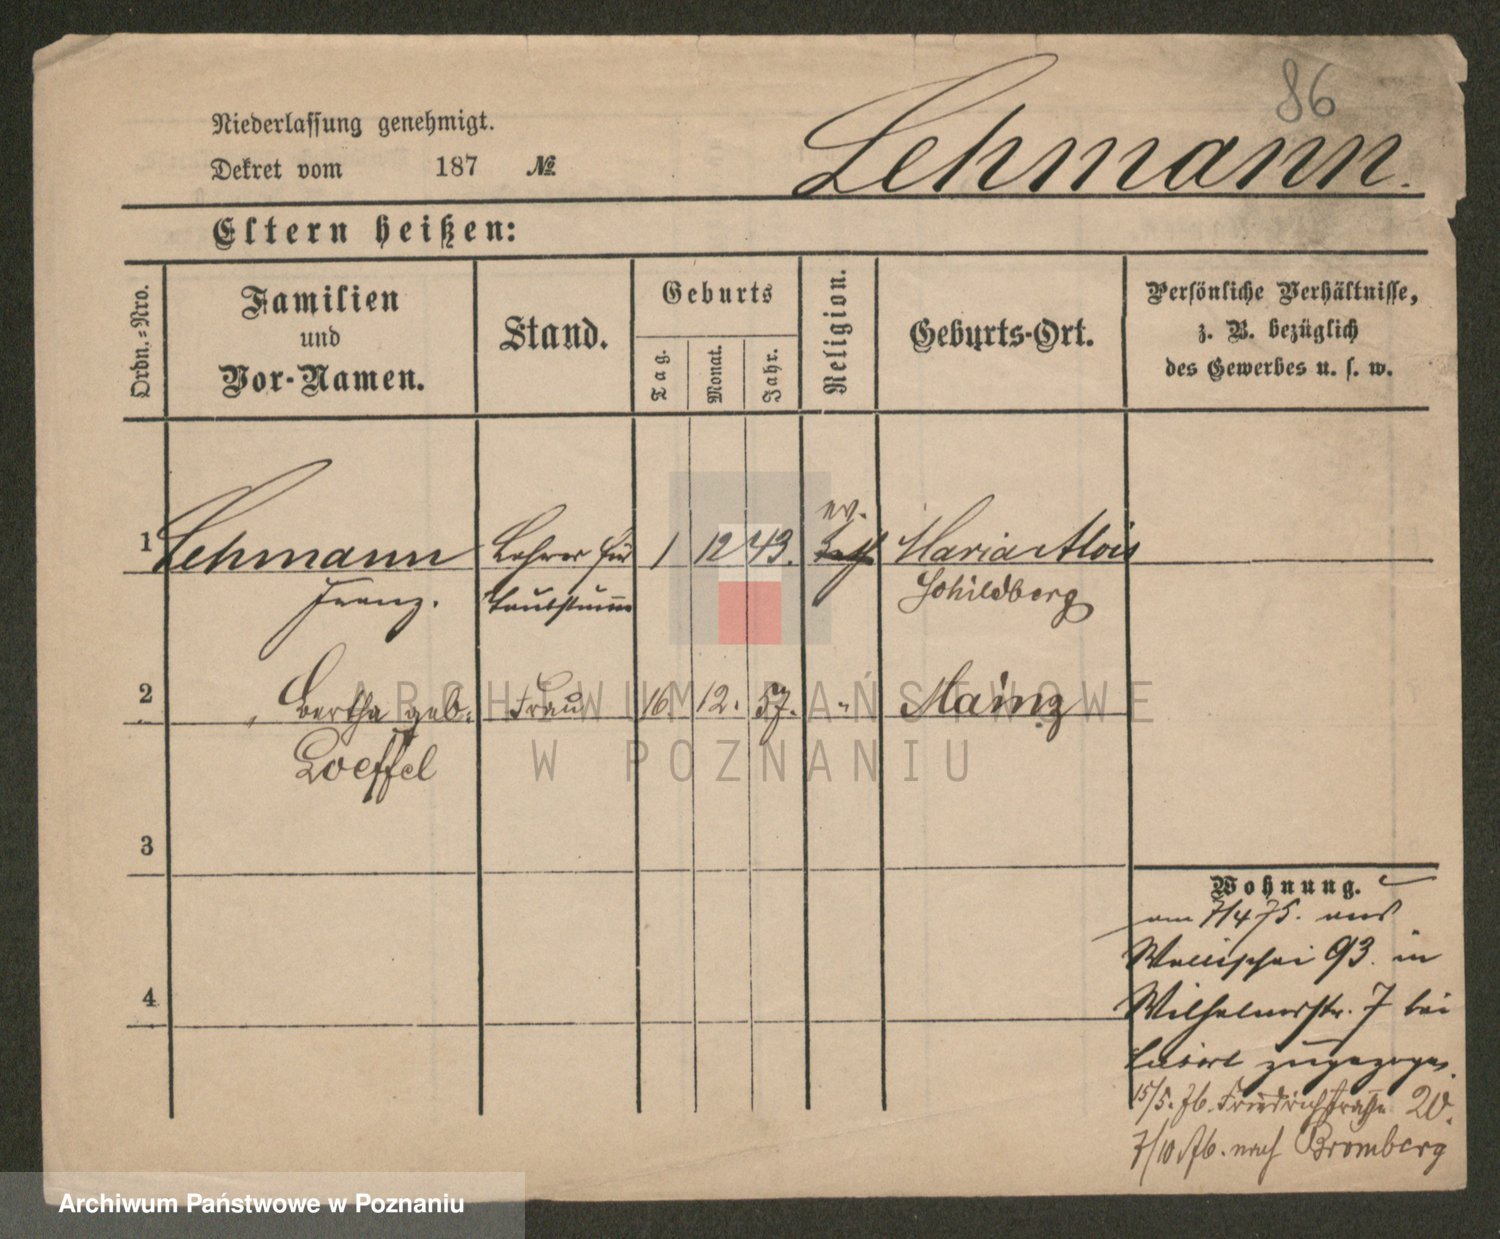 86
Niederlassung genehmigt.
Lehmann.
Dekret vom 187 №
Eltern heißen:
Ordn.-Nro.
Familien
und
Vor-Namen.
Stand.
Geburts
Tag.
Monat.
Jahr.
Religion.
Geburts-Ort.
Persönliche Verhältnisse,
z. B. bezüglich
des Gewerbes u. s. w.
ev.
1 Lehmann Lehrer für 1 12 43. Kath Maria Alois
Franz. Taubstumme Schildberg
2 Bertha geb. Frau 16 12. 57. " Mainz
Loeffel
3
4
Wohnung.
am 7/4 75. aus
Wallischei 93. in
Wilhelmstr. 7 bei
zugezogen.
15/5. 76. Friedrichstraße 20.
7/10 76. nach Bromberg
ARCHIWUM PAŃSTWOWE
W POZNANIU
Archiwum Państwowe w Poznaniu